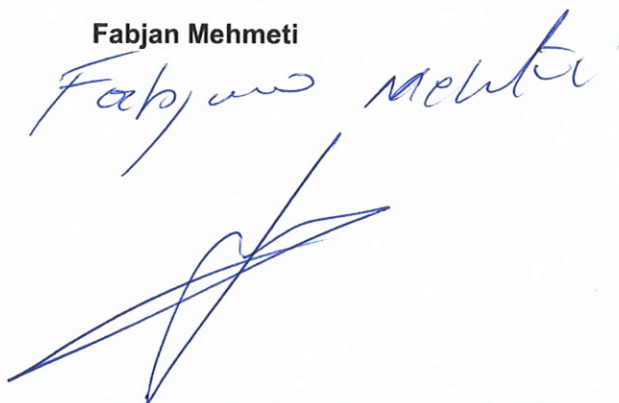 Fabjan Mehmeti
Fabjan Mehmeti